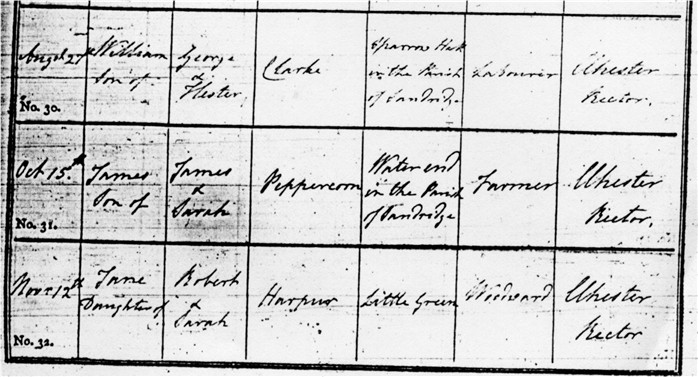 Augst 27th William George Clarke Sparrow Hall Labourer Chester
Son of & in the Parish Rector.
No. 30. Hester of Sandridge
Oct 15th James James Peppercorn Water end Farmer Chester
Son of & in the Parish Rector.
No. 31. Sarah of Sandridge
Novr 12th Jane Robert Harpur Little Green Woodward Chester
Daughter of & Rector
No. 32. Sarah